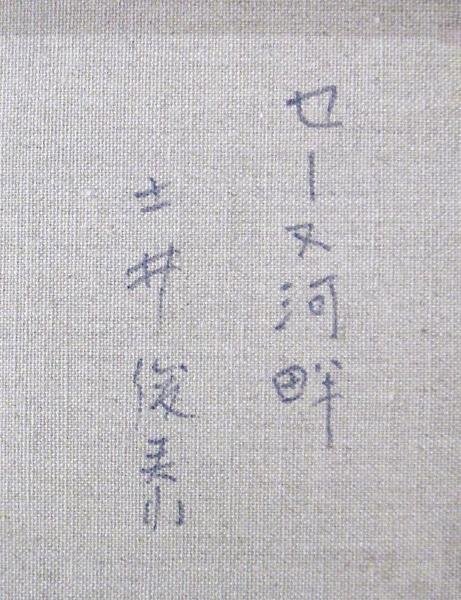 セーヌ河畔
土井俊泰